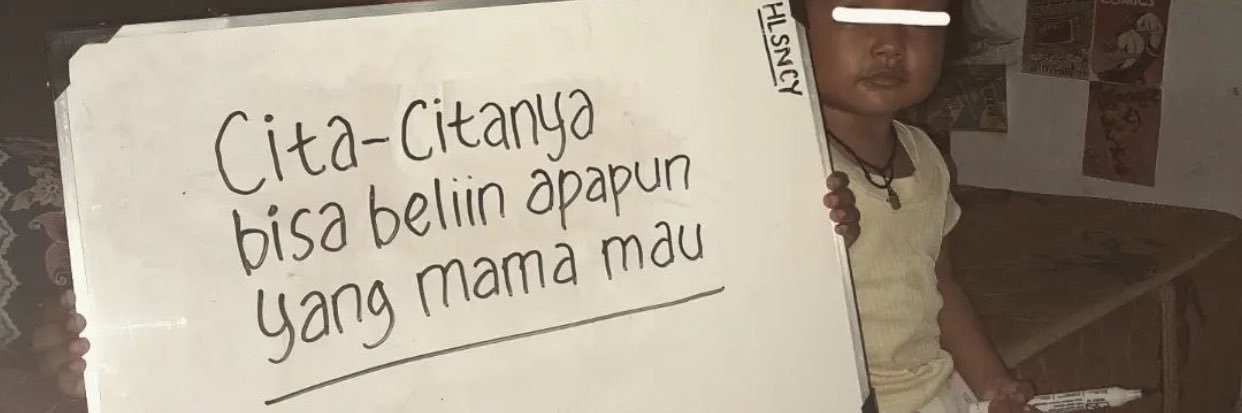 Cita-Citanya
bisa beliin apapun
yang mama mau
HLSNCY
COMICS